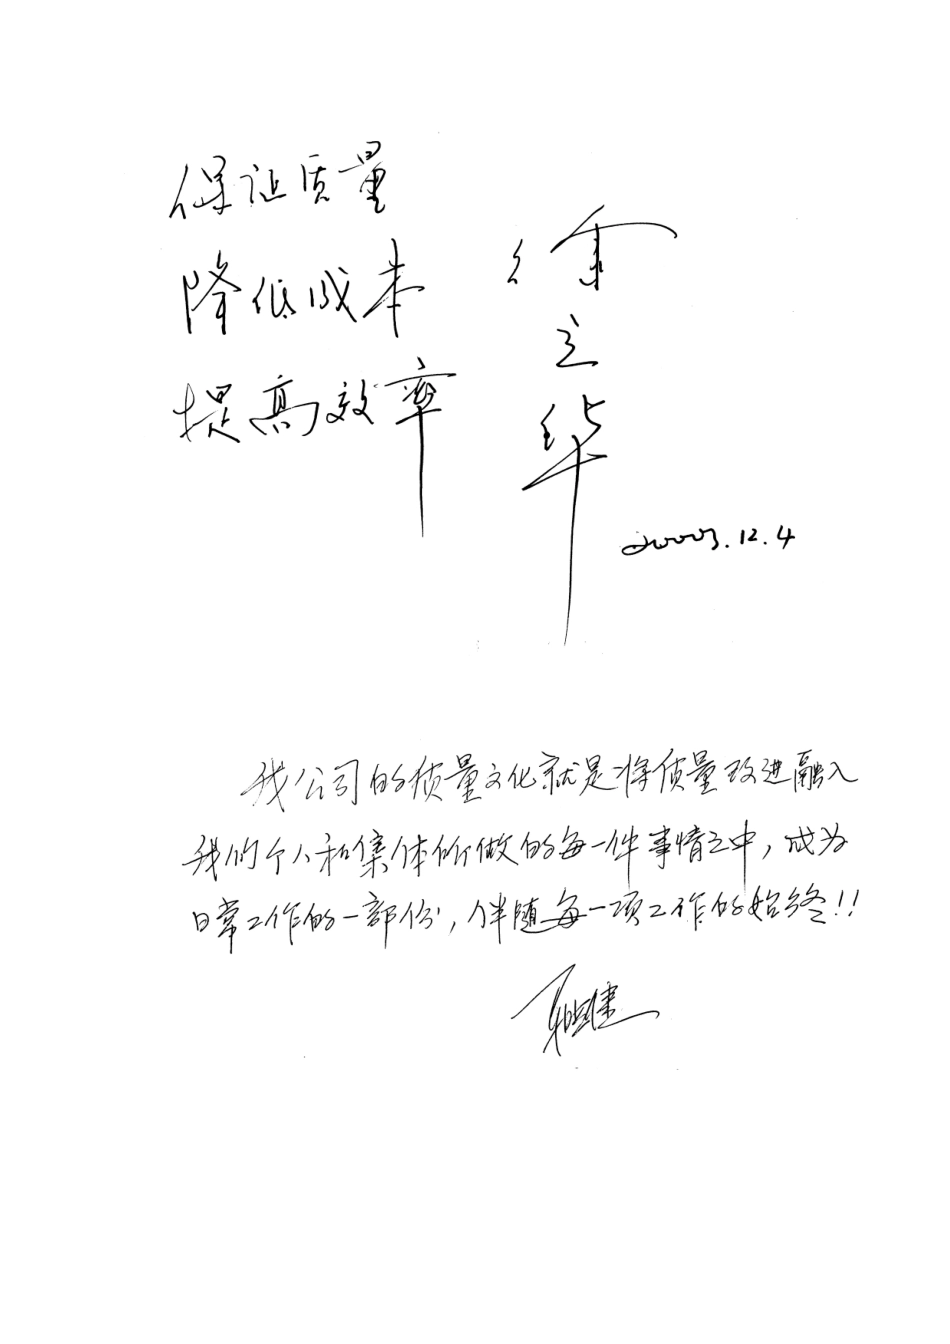 保证质量
降低成本
提高效率
徐立华
2003.12.4
我公司的质量文化就是将质量改进融入
我们个人和集体所做的每一件事情之中，成为
日常工作的一部份，伴随每一项工作的始终！！